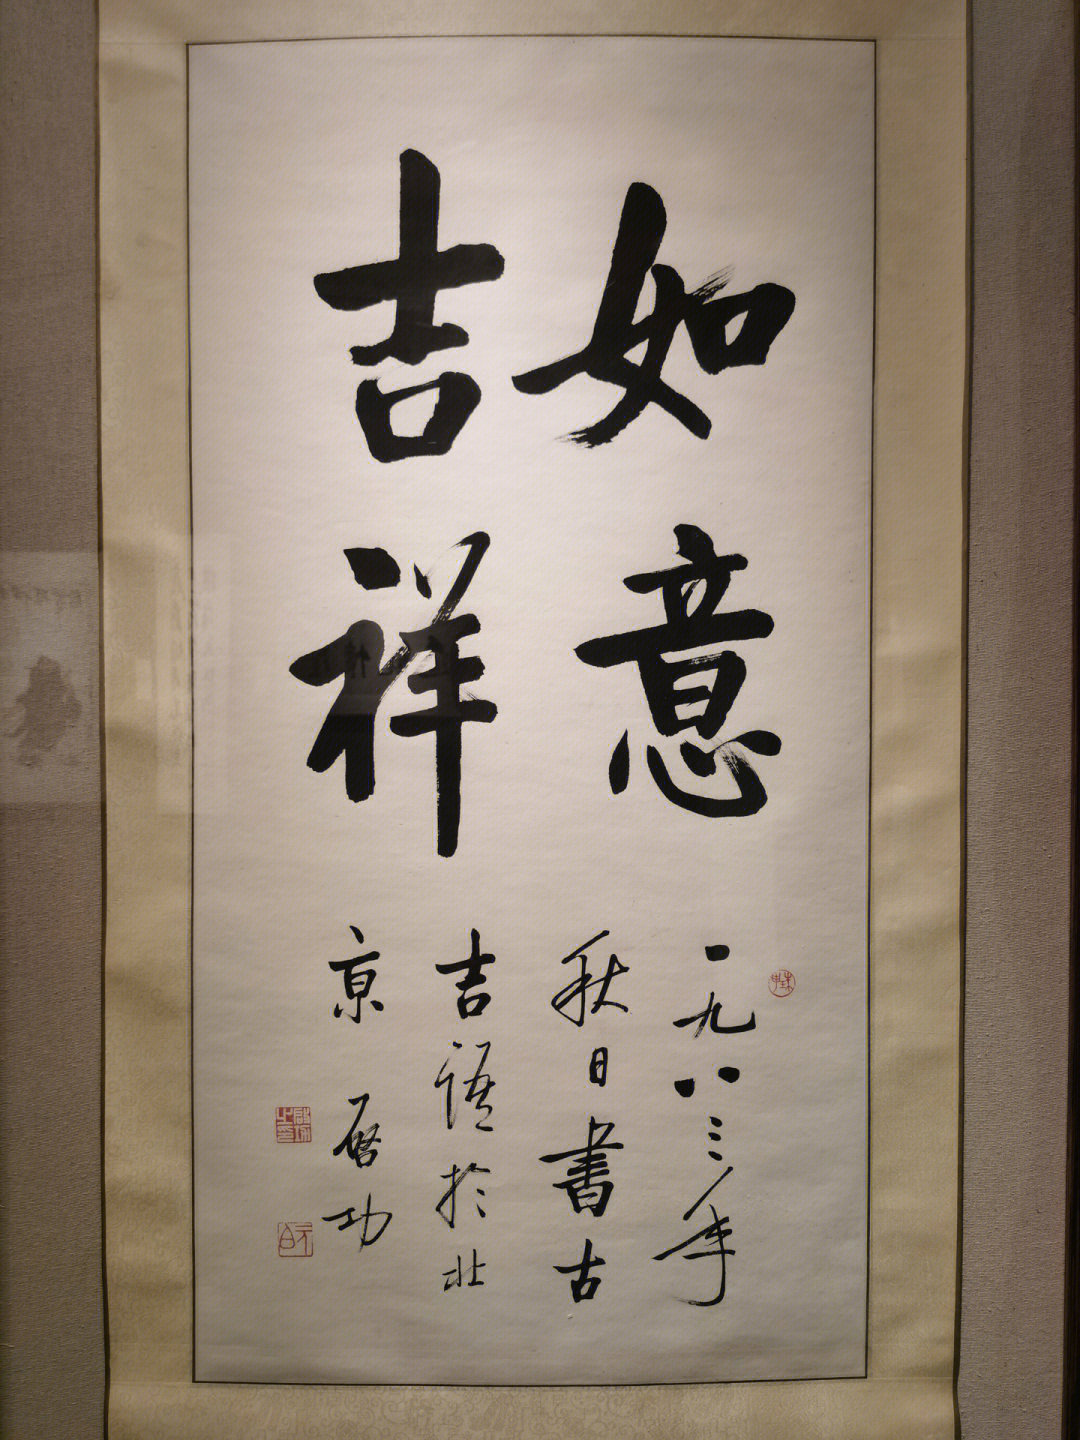 如意
吉祥
一九八三年
秋日書古
吉語於北
京 启功